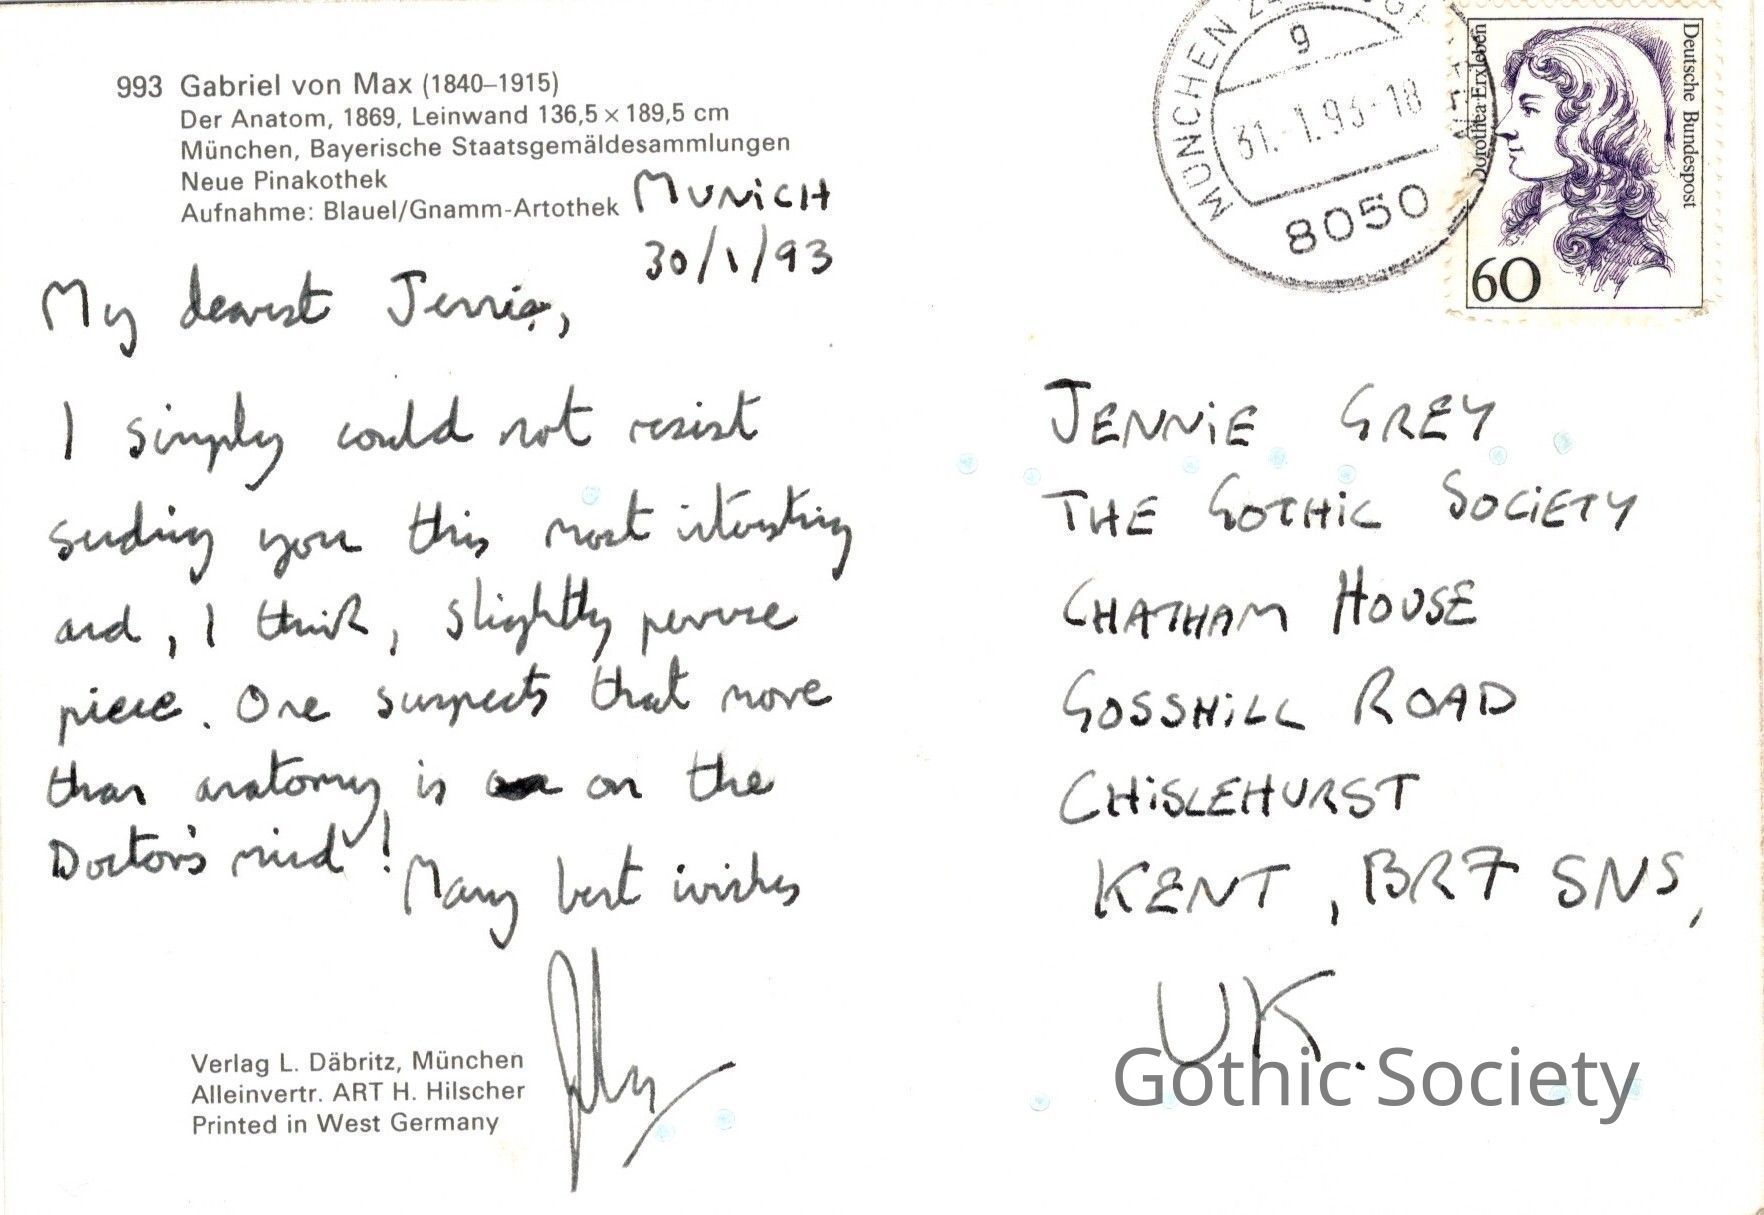 993 Gabriel von Max (1840–1915)
Der Anatom, 1869, Leinwand 136,5 × 189,5 cm
München, Bayerische Staatsgemäldesammlungen
Neue Pinakothek
Aufnahme: Blauel/Gnamm-Artothek
MUNiCH
30/1/93
My dearest Jennie,
I simply could not resist
sending you this most interesting
and, I think, slightly perverse
piece. One suspects that more
than anatomy is on the
Doctor's mind! Many best wishes
Verlag L. Däbritz, München
Alleinvertr. ART H. Hilscher
Printed in West Germany
MÜNCHEN 24
g
31.-1.93-18
8050
Dorothea Erxleben
Deutsche Bundespost
60
JENNiE GREY
THE GOTHiC SOCiETY
CHATHAM HOUSE
GOSSHiLL ROAD
CHiSLEHURST
KENT, BR7 5NS,
UK.
Gothic Society